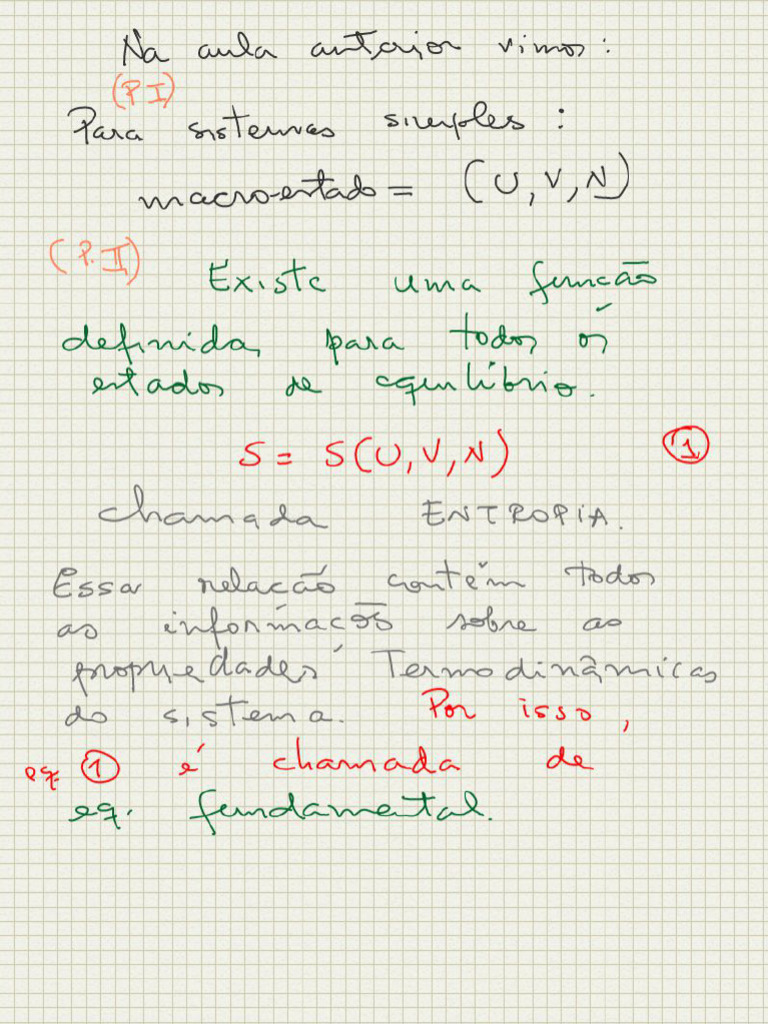 Na aula anterior vimos:
(P.I)
Para sistemas simples:
macro-estado = (U, V, N)
(P.II)
Existe uma função
definida para todos os
estados de equilíbrio.
S = S(U, V, N) 1
chamada ENTROPIA.
Essa relação contém todos
as informações sobre as
propriedades Termodinâmicas
do sistema. Por isso,
eq. 1 é chamada de
eq. fundamental.